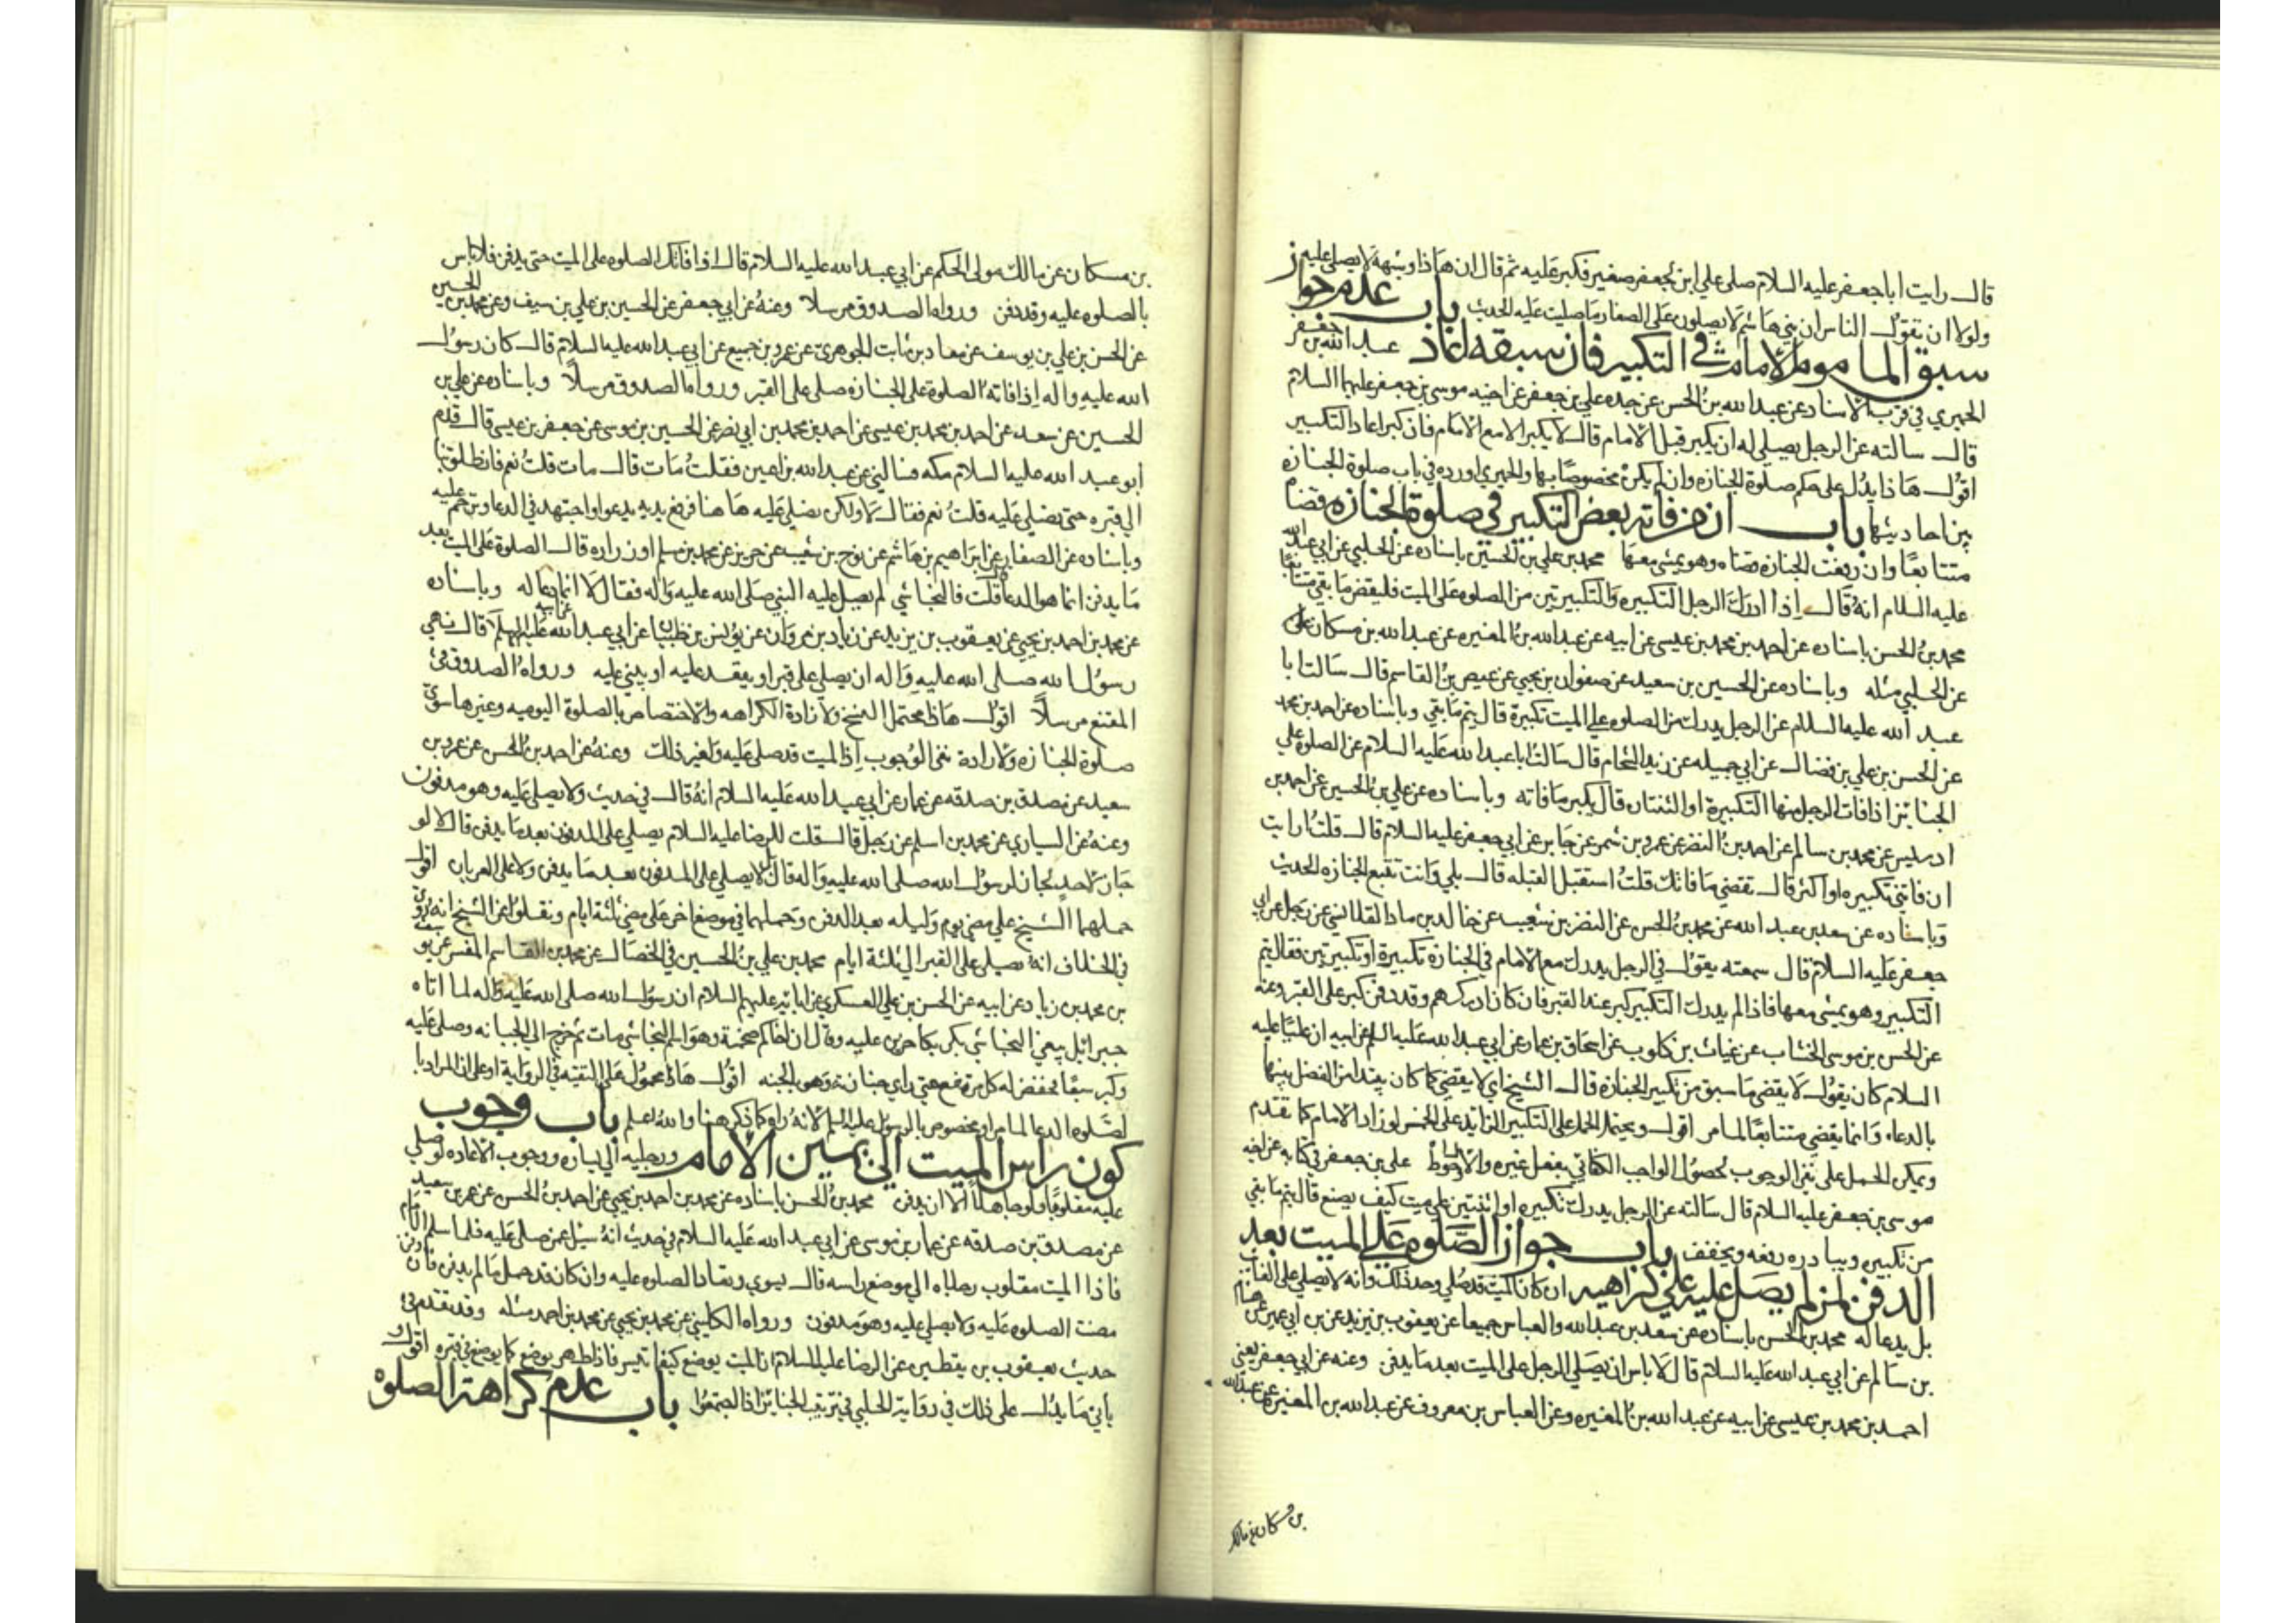 قال رايت ابا جعفر عليه السلام صلى علي ابن لجعفر صغير فكبر عليه ثم قال ان هاذا وشبهه لا يصلى عليه
ولولا ان تقول الناس ان بني هاشم لا يصلون على الصغار ما صليت عليه الحديث باب عدم جواز
سبق الماموم الامام في التكبير فان سبقه اعاد عبد الله بن جعفر
الحميري في قرب الاسناد عن عبد الله بن الحسن عن جده علي بن جعفر عن اخيه موسى بن جعفر عليهما السلام
قال سالته عن الرجل يصلي له ان يكبر قبل الامام قال لا يكبر الا مع الامام فان كبر اعاد التكبير
اقول هاذا يدل على حكم صلوة الجنازه وان لم يكن مخصوصا بها والحميري اورده في باب صلوة الجنازه
بين احاديثها باب ان من فاته بعض التكبير في صلوة الجنازه قضاه
متتابعا وان رفعت الجنازه قضاه وهو يمشي معها محمد بن علي بن الحسين باسناده عن الحلبي عن ابي عبد الله
عليه السلام انه قال اذا ادرك الرجل التكبيره والتكبيرتين من الصلوه على الميت فليقض ما بقي متتابعا
محمد بن الحسن باسناده عن احمد بن محمد بن عيسى عن ابيه عن عبد الله بن المغيره عن عبد الله بن مسكان
عن الحلبي مثله وباسناده عن الحسين بن سعيد عن صفوان بن يحيي عن عيص بن القاسم قال سالت ابا
عبد الله عليه السلام عن الرجل يدرك من الصلوه علي الميت تكبيرة قال يتم ما بقي وباسناده عن احمد بن محمد
عن الحسن بن علي بن فضال عن ابي جميله عن زيد الشحام قال سالت ابا عبد الله عليه السلام عن الصلوه علي
الجنائز اذا فات الرجل منها التكبيرة او الثنتان قال يكبر ما فاته وباسناده عن علي بن الحسين عن احمد بن
ادريس عن محمد بن سالم عن احمد بن النضر عن عمرو بن شمر عن جابر عن ابي جعفر عليه السلام قال قلت ارايت
ان فاتني تكبيره او اكثر قال تقضي ما فاتك قلت استقبل القبله قال بلي وانت تتبع الجنازه الحديث
وباسناده عن سعد بن عبد الله عن محمد بن الحسن عن النضر بن شعيب عن خالد بن ماد القلانسي عن رجل عن ابي
جعفر عليه السلام قال سمعته يقول في الرجل يدرك مع الامام في الجنازة تكبيرة او تكبيرتين فقال يتم
التكبير وهو يمشي معها فاذا لم يدرك التكبير كبر عند القبر فان كان ادركهم وقد دفن كبر على القبر وعنه
عن الحسن بن موسى الخشاب عن غياث بن كلوب عن اسحاق بن عمار عن ابي عبد الله عليه السلم عن ابيه ان عليا عليه
السلام كان يقول لا يقضى ما سبق من تكبير الجنازة قال الشيخ اي لا يقضي كما كان يبتدا من الفصل بينها
بالدعاء وانما يقضي متتابعا لما مر اقول ويحتمل الحمل على التكبير الزايد على الخمس لو زاد الامام كما تقدم
ويمكن الحمل على نفي الوجوب لحصول الواجب الكفائي بفعل غيره والاحوط علي بن جعفر في كتابه عن اخيه
موسى بن جعفر عليه السلام قال سالته عن الرجل يدرك تكبيره او اثنتين علي ميت كيف يصنع قال يتم ما بقي
من تكبيره ويبادره رفعه ويخفف باب جواز الصلوه علي الميت بعد
الدفن لمن لم يصل عليه علي كراهيه ان كان الميت قد صلي وحد ذلك وانه لا يصلي على الغايب
بل يدعا له محمد بن الحسن باسناده عن سعد بن عبد الله والعباس جميعا عن يعقوب بن يزيد عن بن ابي عمير عن هشام
بن سالم عن ابي عبد الله عليه السلام قال لا باس ان يصلي الرجل على الميت بعد ما يدفن وعنه عن ابي جعفر يعني
احمد بن محمد بن عيسى عن ابيه عن عبد الله بن المغيره وعن العباس بن معروف عن عبد الله بن المغيره عن عبد الله
بن مسكان عن مالك
بن مسكان عن مالك مولى الحكم عن ابي عبد الله عليه السلام قال اذا فاتك الصلوه على الميت حتى يدفن فلا باس
بالصلوه عليه وقد دفن ورواه الصدوق مرسلا وعنه عن ابي جعفر عن الحسين بن علي بن سيف وعن محمد بن الحسين
عن الحسن بن علي بن يوسف عن معاد بن ثابت الجوهري عن عمرو بن جميع عن ابي عبد الله عليه السلام قال كان رسول
الله عليه واله اذا فاته الصلوة على الجنازه صلى على القبر ورواه الصدوق مرسلا وباسناده عن علي بن
الحسين عن سعد عن احمد بن محمد بن عيسى عن احمد بن محمد بن ابي نصر عن الحسين بن موسى عن جعفر بن عيسى قال قدم
ابو عبد الله عليه السلام مكه فسالني عن عبد الله بن اعين فقلت مات قال مات قلت نعم فانطلق بنا
الي قبره حتى نصلي عليه قلت نعم فقال لا ولكن نصلي عليه هاهنا فرفع يديه يدعوا واجتهد في الدعا وترحم عليه
وباسناده عن الصفار عن ابراهيم بن هاشم عن نوح بن شعيب عن حريز عن محمد بن مسلم او زراره قال الصلوة على الميت بعد
ما يدفن انما هو الدعا قلت فالنجاشي لم يصل عليه النبي صلى الله عليه واله فقال لا انما دعا له وباسناده
عن محمد بن احمد بن يحيي عن يعقوب بن يزيد عن زياد بن مروان عن يونس بن ظبيان عن ابي عبد الله عن ابيه عليهما السلام قال نهي
رسول الله صلى الله عليه واله ان يصلي علي قبر او يقعد عليه او يبني عليه ورواه الصدوق في
المقنع مرسلا اقول هاذا يحتمل النسخ ولارادة الكراهه والاختصاص بالصلوة اليوميه وغيرها سوي
صلوة الجنازه ولارادة نفي الوجوب اذا الميت قد صلي عليه ولغير ذلك وعنه عن احمد بن الحسن عن عمرو بن
سعيد عن مصدق بن صدقه عن عمار عن ابي عبد الله عليه السلام انه قال في حديث ولا يصلي عليه وهو مدفون
وعنه عن السياري عن محمد بن اسلم عن رجل قال قلت للرضا عليه السلام يصلي على المدفون بعد ما يدفن قال لا لو
جاز لاحد لجاز لرسول الله صلى الله عليه واله قال بل لا يصلي على المدفون بعد ما يدفن ولا على العريان اقول
حملهما الشيخ علي مضي يوم وليله بعد الدفن وحملهما في موضع اخر على مضي ثلثة ايام ونقلوا عن الشيخ انه روى
في الخلاف انه يصلى على القبر الي ثلثة ايام محمد بن علي بن الحسين في الخصال عن محمد بن القاسم المفسر عن يوسف
بن محمد بن زياد عن ابيه عن الحسن بن علي العسكري عن ابائه عليهم السلام ان رسول الله صلى الله عليه واله لما اتاه
جبرائيل ينعي النجاشي بكى بكا حزين عليه وقال ان اخاكم اصحمة وهو اسم النجاشي مات ثم خرج الي الجبانه وصلى عليه
وكبر سبعا فخفض له كل مرتفع حتى راي جنازته وهو بالحبشه اقول هاذا محمول على التقيه في الرواية او على ان المراد با
لصلوه الدعا لما مر او مخصوص بالرسول عليه السلم لانه راه كما ذكر هنا والله اعلم باب وجوب
كون راس الميت الي يمين الامام ورجليه الي يساره ووجوب الاعاده لو صلي
عليه مقلوبا ولو جاهلا الا ان يدفن محمد بن الحسن باسناده عن محمد بن احمد بن يحيي عن احمد بن الحسن عن عمرو بن سعيد
عن مصدق بن صدقه عن عمار بن موسى عن ابي عبد الله عليه السلام في حديث انه سئل عمن صلى عليه فلما سلم الامام
فاذا الميت مقلوب رجلاه الي موضع راسه قال يسوي وتعاد الصلوه عليه وان كان قد حمل ما لم يدفن فان دفن
مضت الصلوه عليه ولا يصلي عليه وهو مدفون ورواه الكليني عن محمد بن يحيي عن محمد بن احمد مثله وقد تقدم في
حديث يعقوب بن يقطين عن الرضا عليه السلام ان الميت يوضع كيفما تيسر فاذا طهر يوضع كما يوضع في قبره اقول و
ياتي ما يدل على ذلك في رواية الحلبي في ترتيب الجنائز اذا اجتمعوا باب عدم كراهة الصلوه